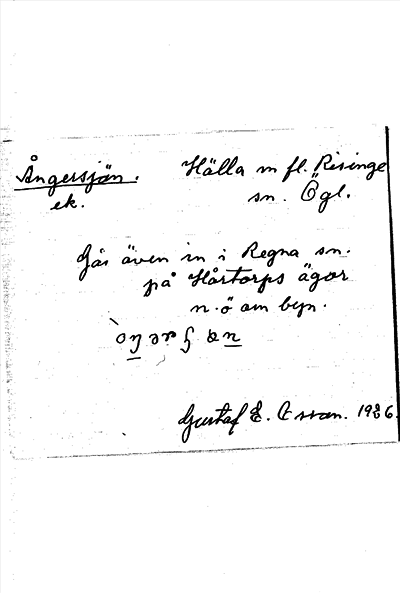 Ångersjön. Hälla m fl. Risinge
ek. sn. Ögl.
Går även in i Regna sn.
på Hårtorps ägor
n.ö om byn.
Gustaf E. 1986.